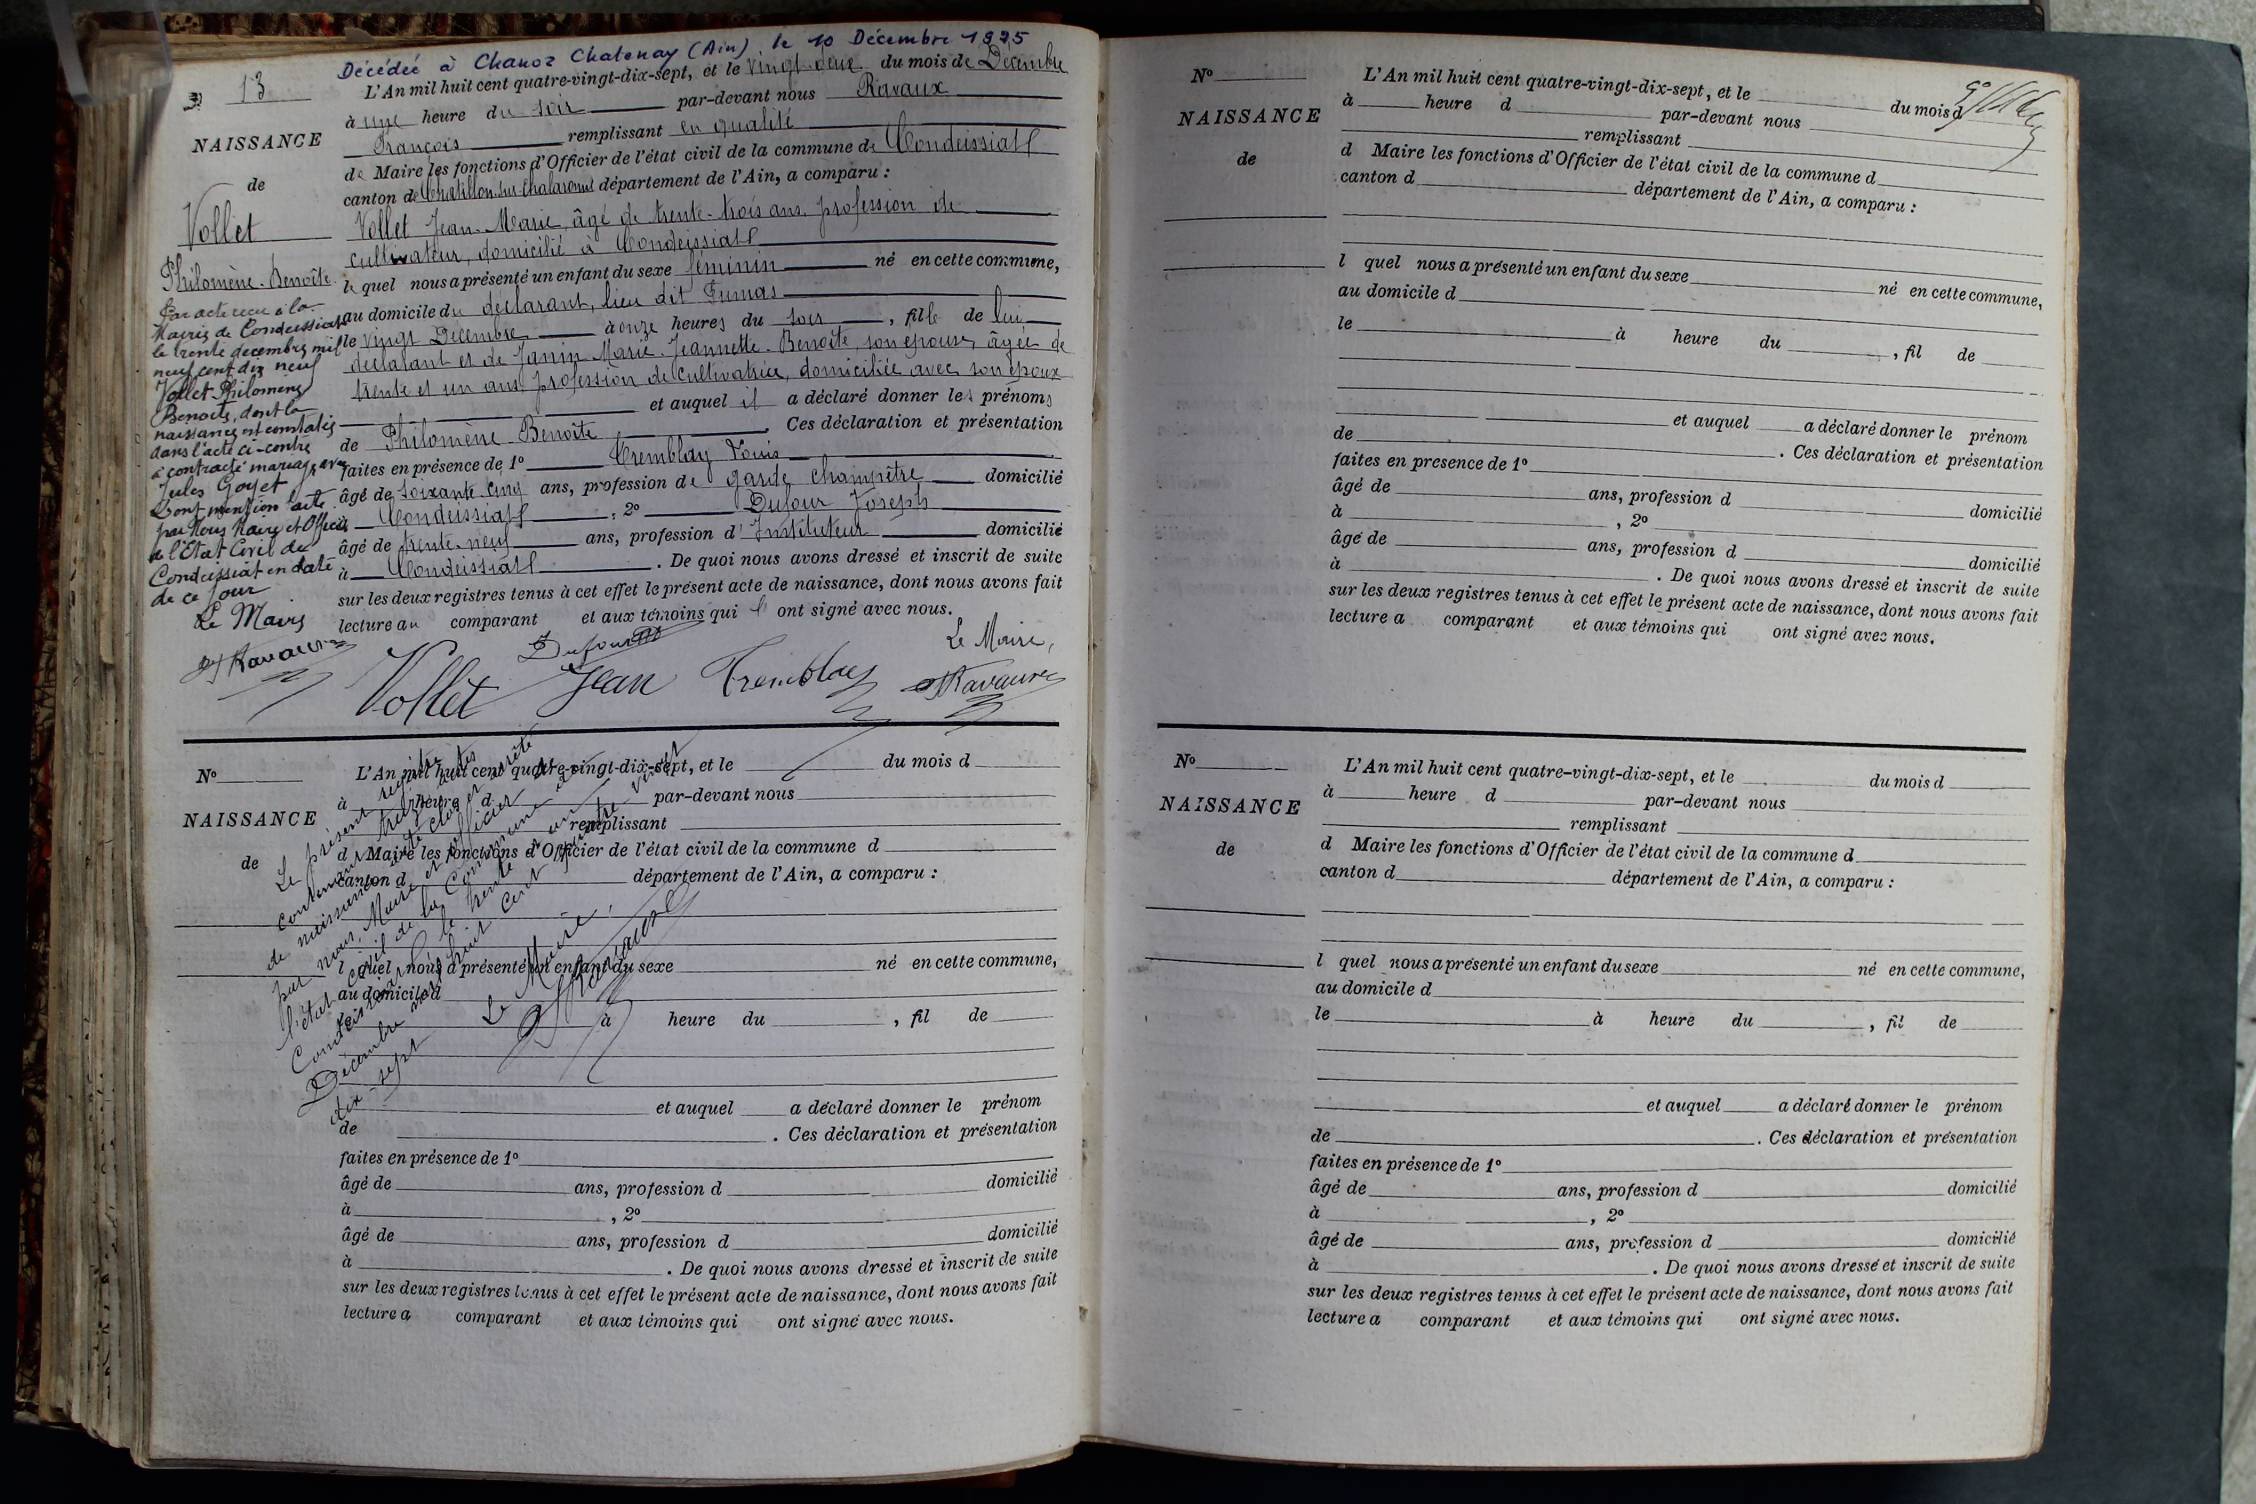 Décédée à Chanoz Chatenay (Ain), le 10 Décembre 1975
13
NAISSANCE
de
Vollet
Philomène-Benoîte
Par acte reçu à la
Mairie de Condeissiat
le trente decembre mil
neuf cent dix neuf
Vollet Philomène
Benoite, dont la
naissance est constatée
dans l'acte ci-contre
a contracté mariage avec
Jules Goyet
Dont mention faite
par Nous Maire et Officier
de l'Etat Civil de
Condeissiat en date
de ce jour
Le Maire
Ravaux
L'An mil huit cent quatre-vingt-dix-sept, et le vingt-deux du mois de Décembre
à une heure du soir par-devant nous Ravaux
François remplissant en qualité
de Maire les fonctions d'Officier de l'état civil de la commune de Condeissiat
canton de Chatillon-sur-Chalaronne département de l'Ain, a comparu :
Vollet Jean-Marie, âgé de trente-trois ans, profession de
cultivateur, domicilié à Condeissiat
le quel nous a présenté un enfant du sexe féminin né en cette commune,
au domicile du déclarant, lieu dit Fumas
le vingt Décembre à onze heures du soir, fille de lui
déclarant et de Janin Marie-Jeannette-Benoîte, son épouse, âgée de
trente et un ans, profession de cultivatrice, domiciliée avec son époux
et auquel il a déclaré donner les prénoms
de Philomène-Benoîte . Ces déclaration et présentation
faites en présence de 1º Tremblay Louis
âgé de soixante-cinq ans, profession de garde champêtre domicilié
à Condeissiat , 2º Dufour Joseph
âgé de trente-neuf ans, profession d'Instituteur domicilié
à Condeissiat . De quoi nous avons dressé et inscrit de suite
sur les deux registres tenus à cet effet le présent acte de naissance, dont nous avons fait
lecture au comparant et aux témoins qui ont signé avec nous.
Dufour
Le Maire,
Vollet Jean Tremblay Ravaux
Nº
NAISSANCE
de
L'An mil huit cent quatre-vingt-dix-sept, et le du mois d
à heure d par-devant nous
remplissant
d Maire les fonctions d'Officier de l'état civil de la commune d
canton d département de l'Ain, a comparu :
l quel nous a présenté un enfant du sexe né en cette commune,
au domicile d
à heure du , fil de
et auquel a déclaré donner le prénom
de . Ces déclaration et présentation
faites en présence de 1º
âgé de ans, profession d domicilié
à , 2º
âgé de ans, profession d domicilié
à . De quoi nous avons dressé et inscrit de suite
sur les deux registres tenus à cet effet le présent acte de naissance, dont nous avons fait
lecture a comparant et aux témoins qui ont signé avec nous.
Le présent registre
contenant treize actes
de naissance a été clos et arrêté
par nous, Maire et officier de
l'état civil de la Commune de
Condeissiat le trente un
Décembre mil huit cent quatre vingt
dix-sept
Le Maire,
Ravaux
Nº
NAISSANCE
de
L'An mil huit cent quatre-vingt-dix-sept, et le du mois d
à heure d par-devant nous
remplissant
d Maire les fonctions d'Officier de l'état civil de la commune d
canton d département de l'Ain, a comparu :
l quel nous a présenté un enfant du sexe né en cette commune,
au domicile d
le à heure du , fil de
et auquel a déclaré donner le prénom
de . Ces déclaration et présentation
faites en presence de 1º
âgé de ans, profession d domicilié
à , 2º
âgé de ans, profession d domicilié
à . De quoi nous avons dressé et inscrit de suite
sur les deux registres tenus à cet effet le présent acte de naissance, dont nous avons fait
lecture a comparant et aux témoins qui ont signé avec nous.
Nº
NAISSANCE
de
L'An mil huit cent quatre-vingt-dix-sept, et le du mois d
à heure d par-devant nous
remplissant
d Maire les fonctions d'Officier de l'état civil de la commune d
canton d département de l'Ain, a comparu :
l quel nous a présenté un enfant du sexe né en cette commune,
au domicile d
le à heure du , fil de
et auquel a déclaré donner le prénom
de . Ces déclaration et présentation
faites en présence de 1º
âgé de ans, profession d domicilié
à , 2º
âgé de ans, profession d domicilié
à . De quoi nous avons dressé et inscrit de suite
sur les deux registres tenus à cet effet le présent acte de naissance, dont nous avons fait
lecture a comparant et aux témoins qui ont signé avec nous.